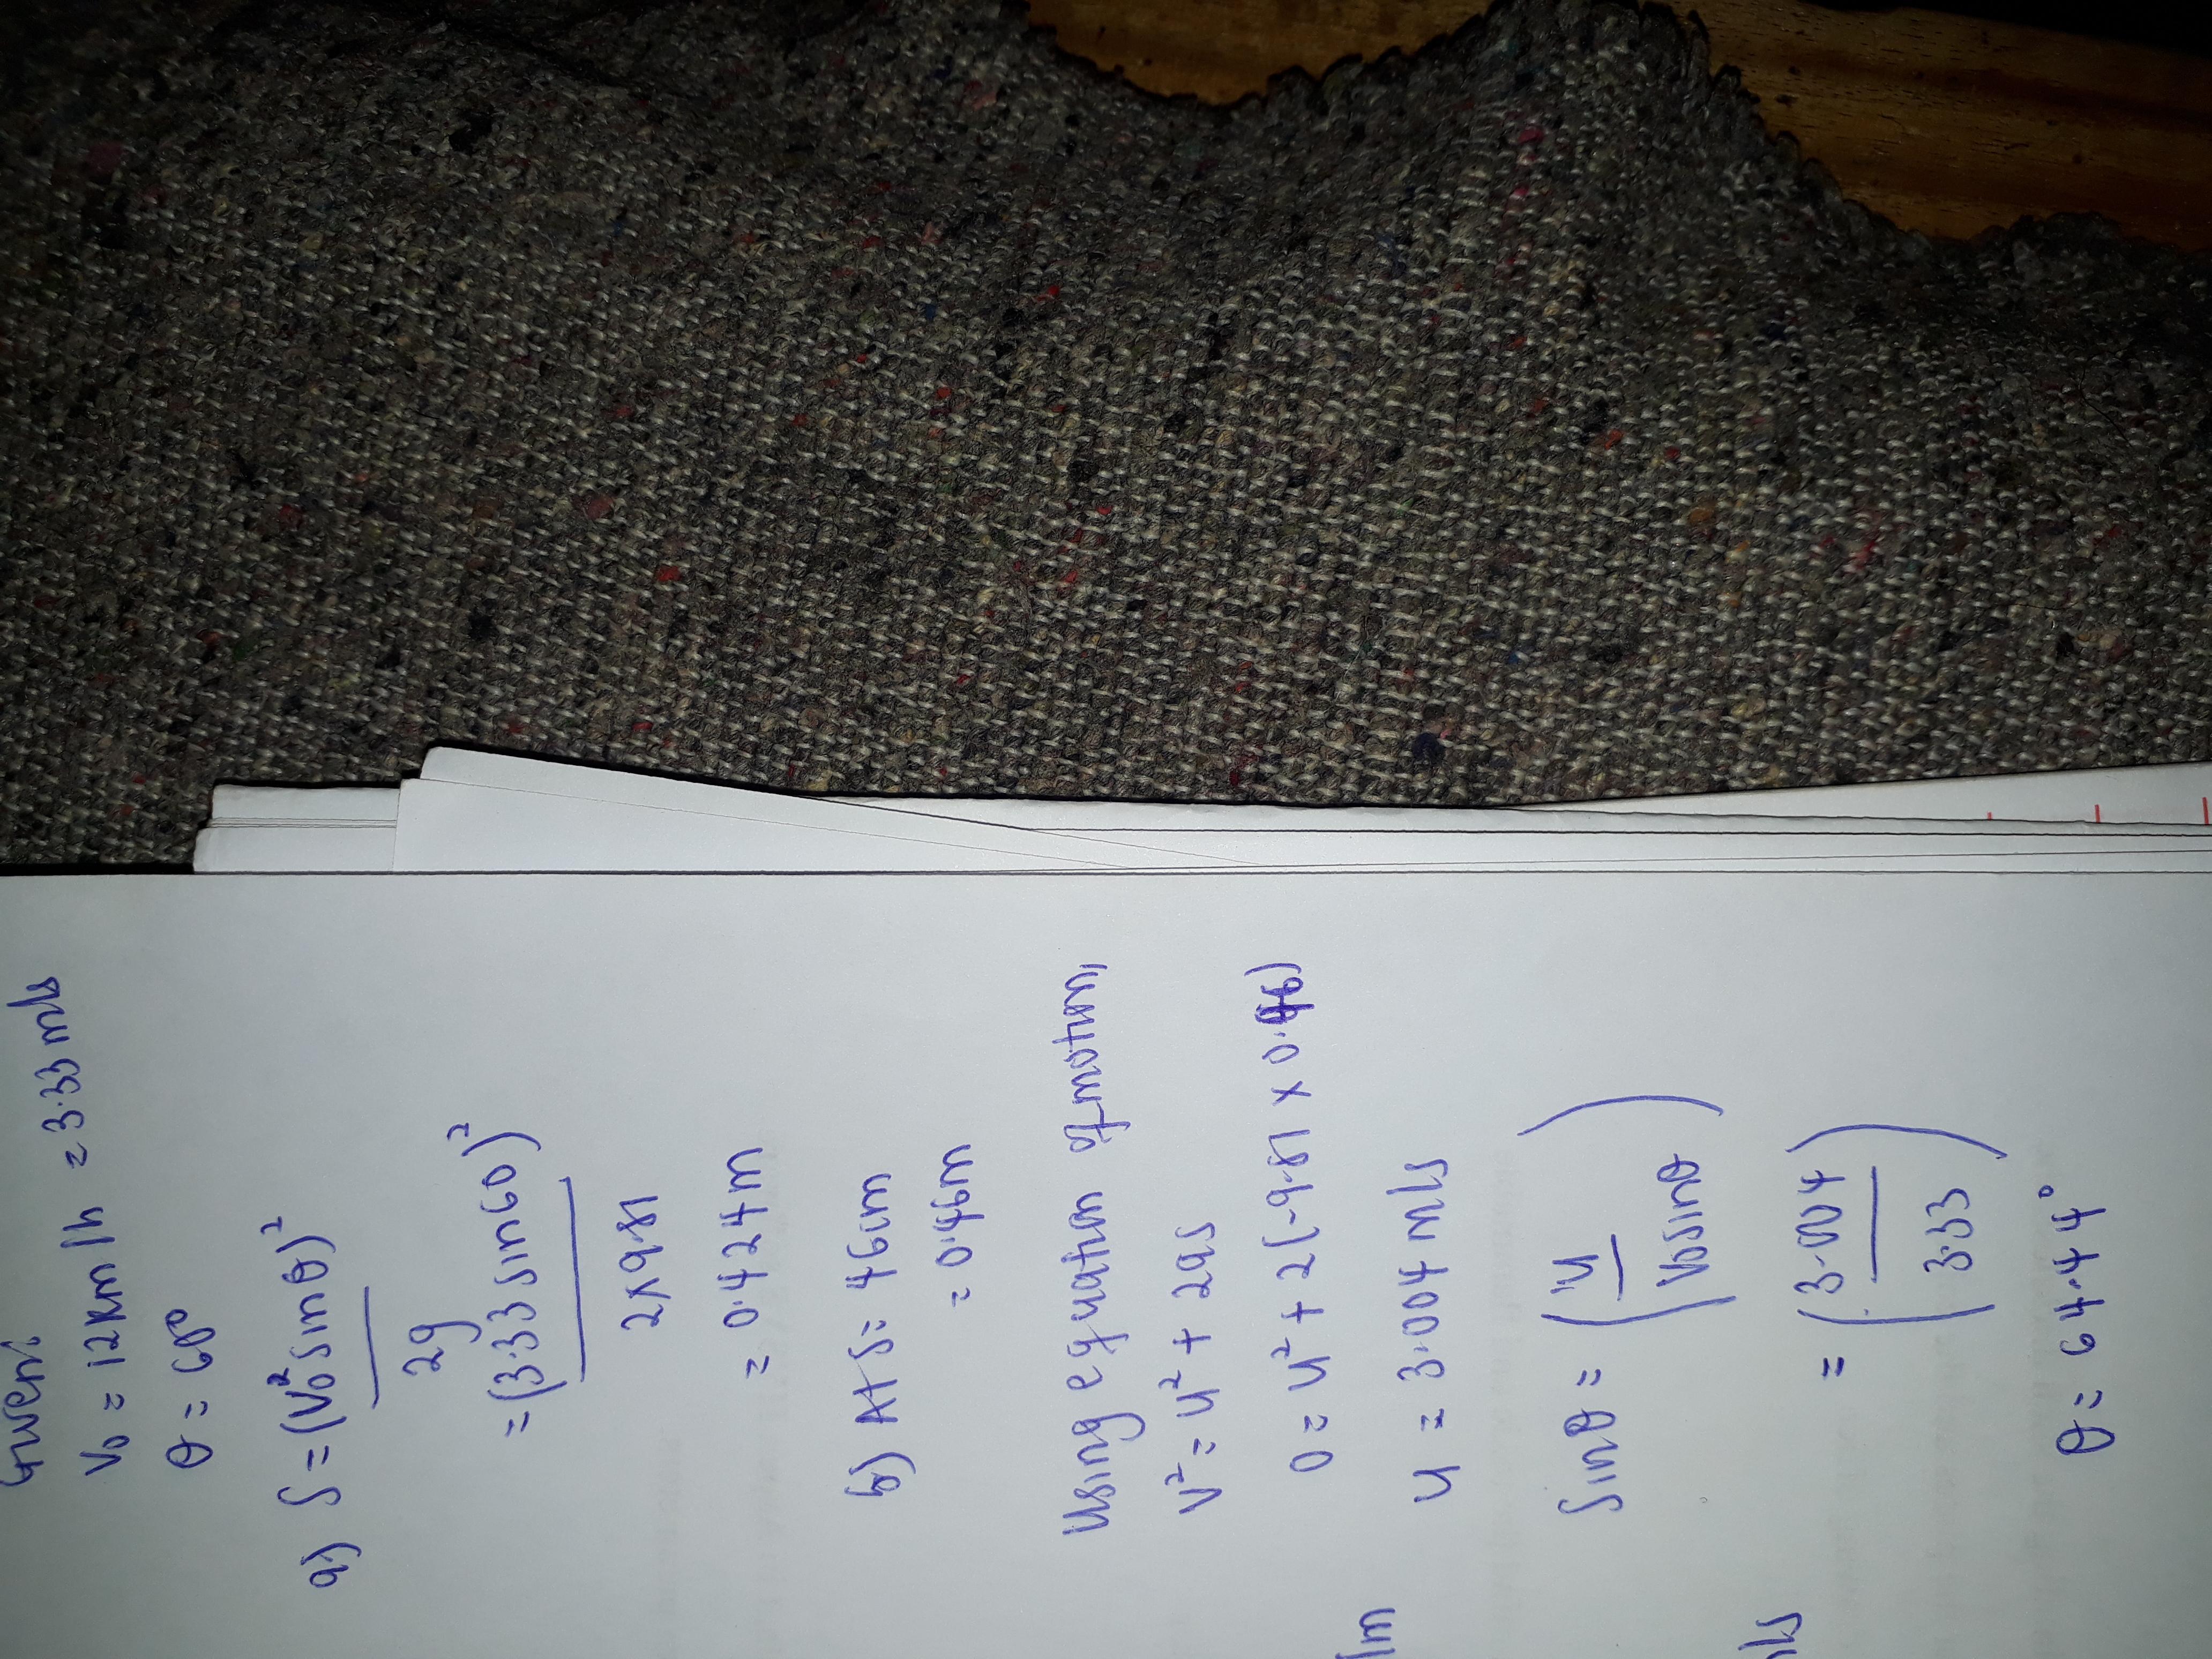 Given:
V₀ = 12 km/h = 3.33 m/s
θ = 60°
a) S = (V₀² sin θ)²
2g
= (3.33 sin 60)²
2×9.81
= 0.424 m
b) At S = 46cm
= 0.46m
Using equation of motion,
V² = U² + 2as
0 = U² + 2(-9.81 × 0.46)
U = 3.004 m/s
sin θ = (U
V₀ sin θ)
= (3.004
3.33)
θ = 64.44°
/m
/s